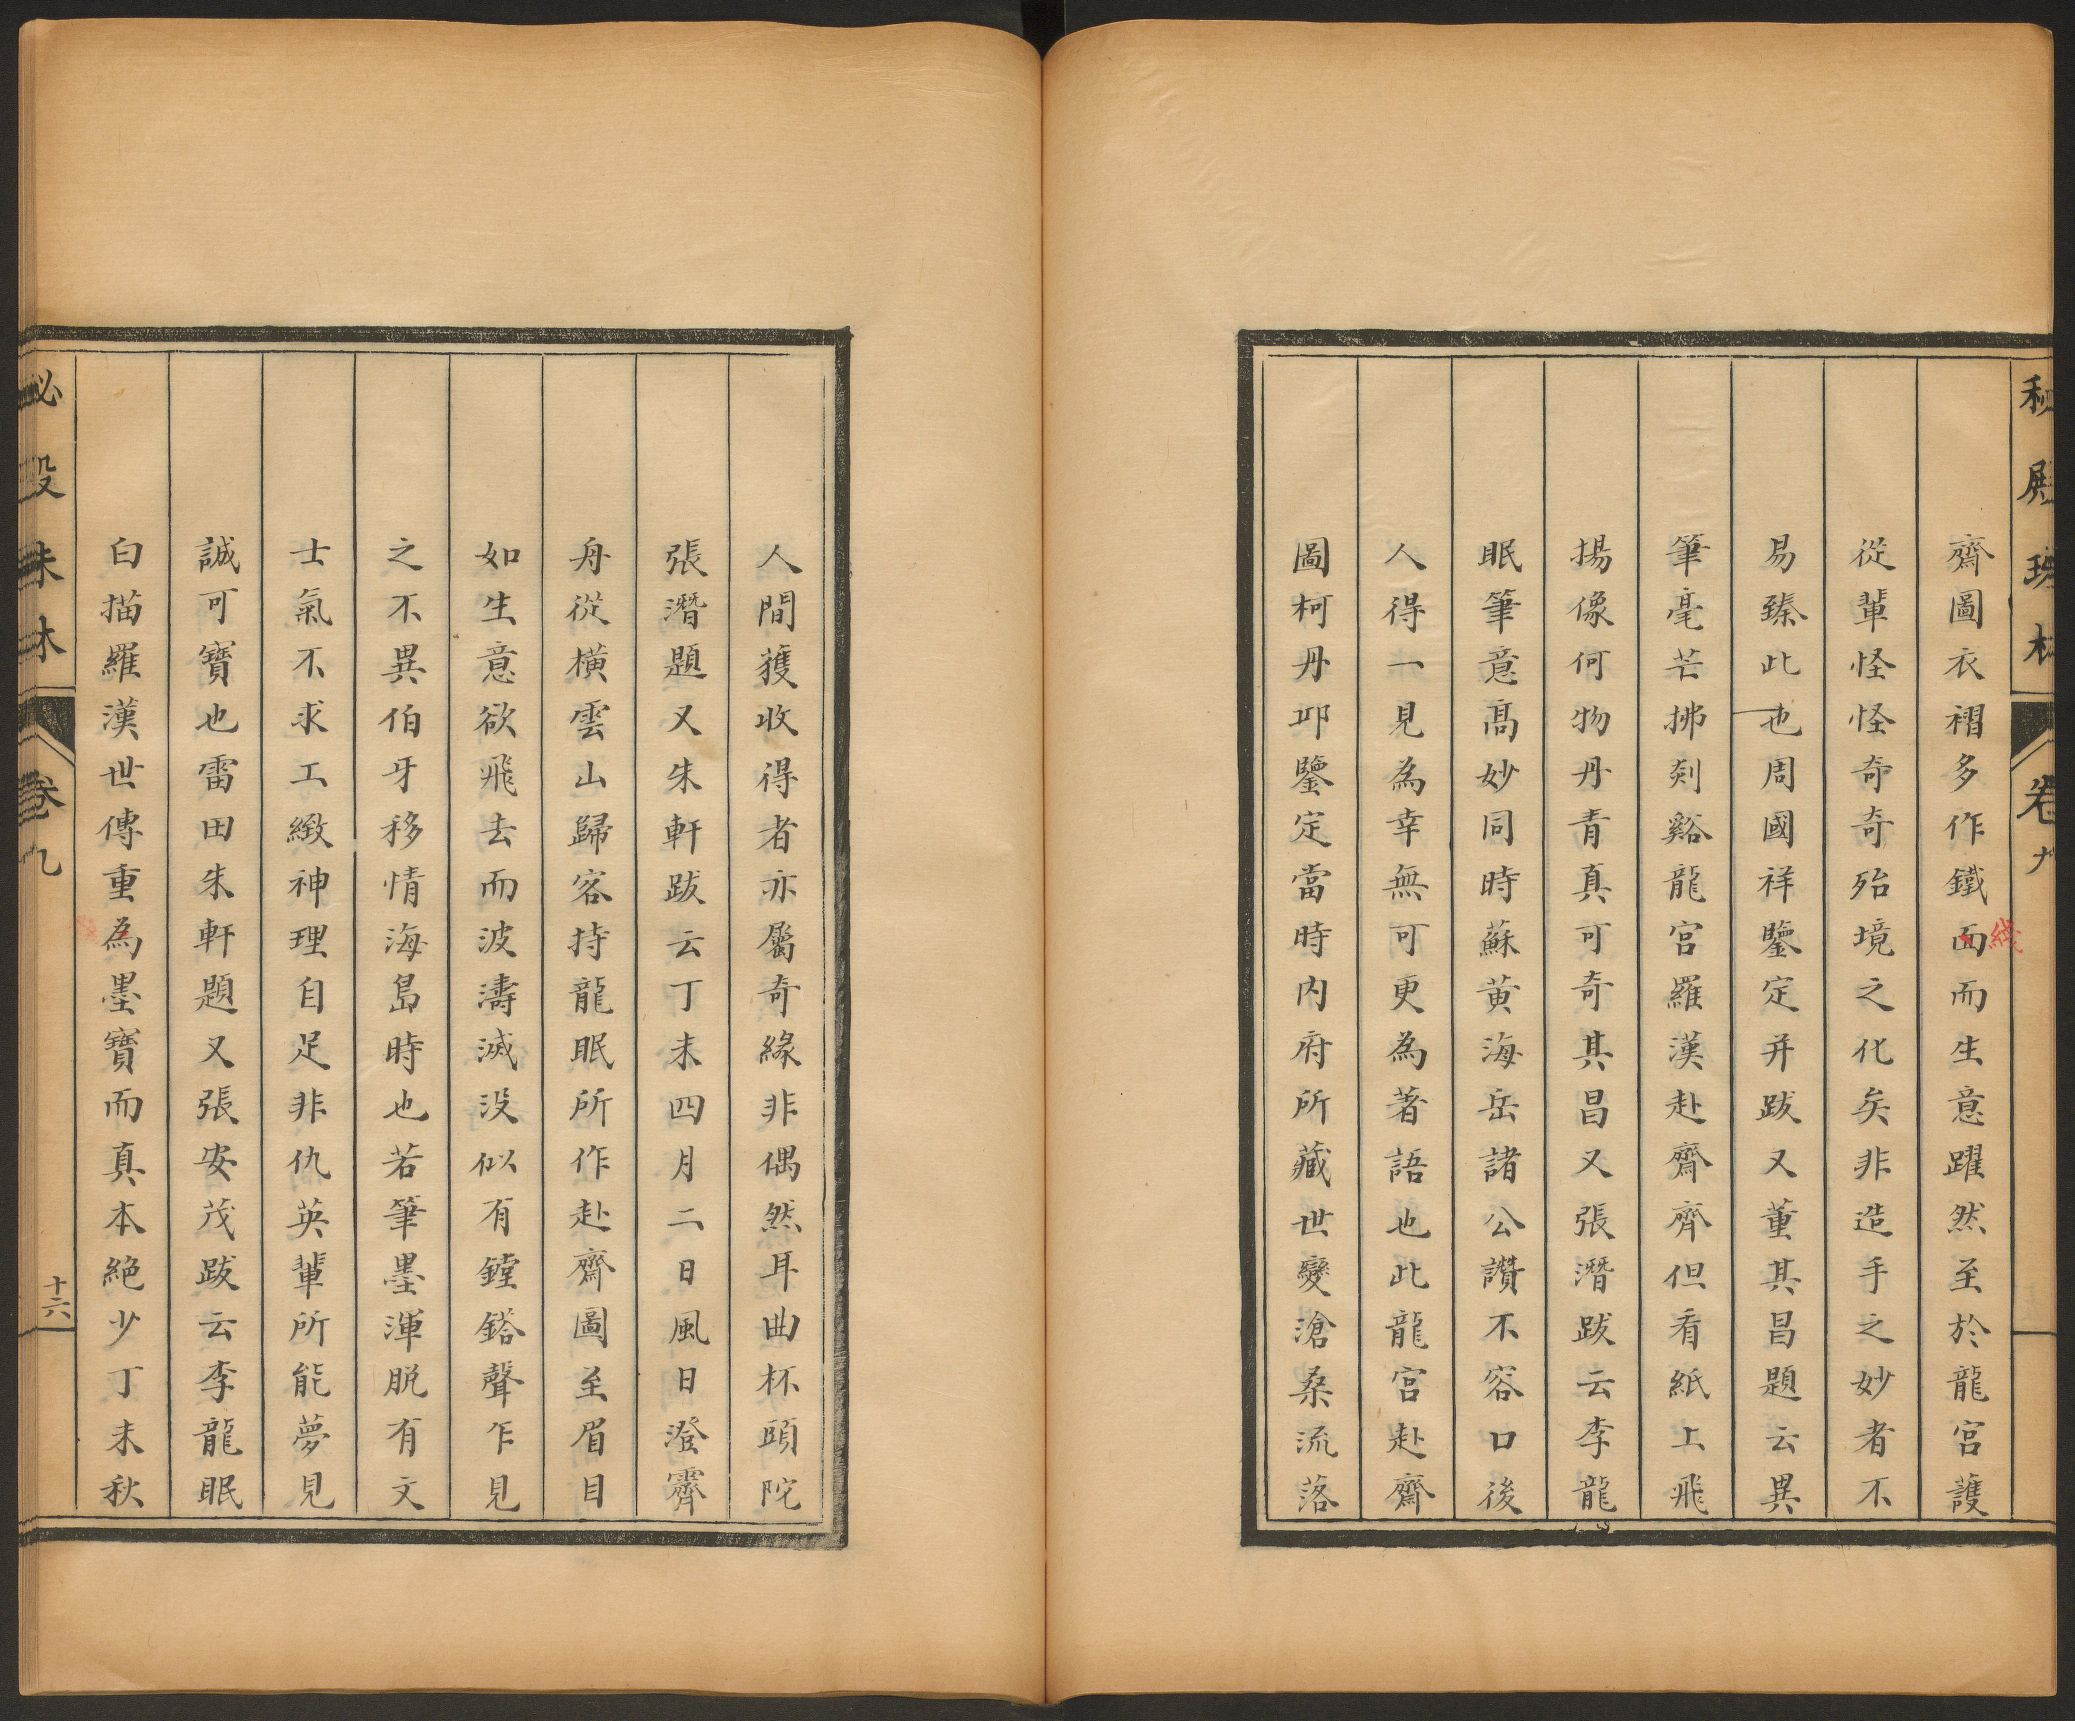 秘殿珠林 卷九
齋圖衣褶多作鐵面而生意躍然至於龍宮護
綫
從輩怪怪奇奇殆境之化矣非造手之妙者不
易臻此也周國祥鑒定并跋又董其昌題云異
筆毫芒拂剡谿龍宮羅漢赴齋齊但看紙上飛
揚像何物丹青真可奇其昌又張潛跋云李龍
眠筆意高妙同時蘇黃海岳諸公讚不容口後
人得一見為幸無可更為著語也此龍宮赴齋
圖柯丹邱鑒定當時內府所藏世變滄桑流落
人間獲收得者亦屬奇緣非偶然耳曲杯頭陀
張潛題又朱軒跋云丁未四月二日風日澄霽
舟從橫雲山歸客持龍眠所作赴齋圖至眉目
如生意欲飛去而波濤滅没似有鏜鎝聲乍見
之不異伯牙移情海島時也若筆墨渾脱有文
士氣不求工緻神理自足非仇英輩所能夢見
誠可寶也雷田朱軒題又張安茂跋云李龍眠
白描羅漢世傳重為墨寶而真本絕少丁未秋
秘殿珠林 卷九 十六